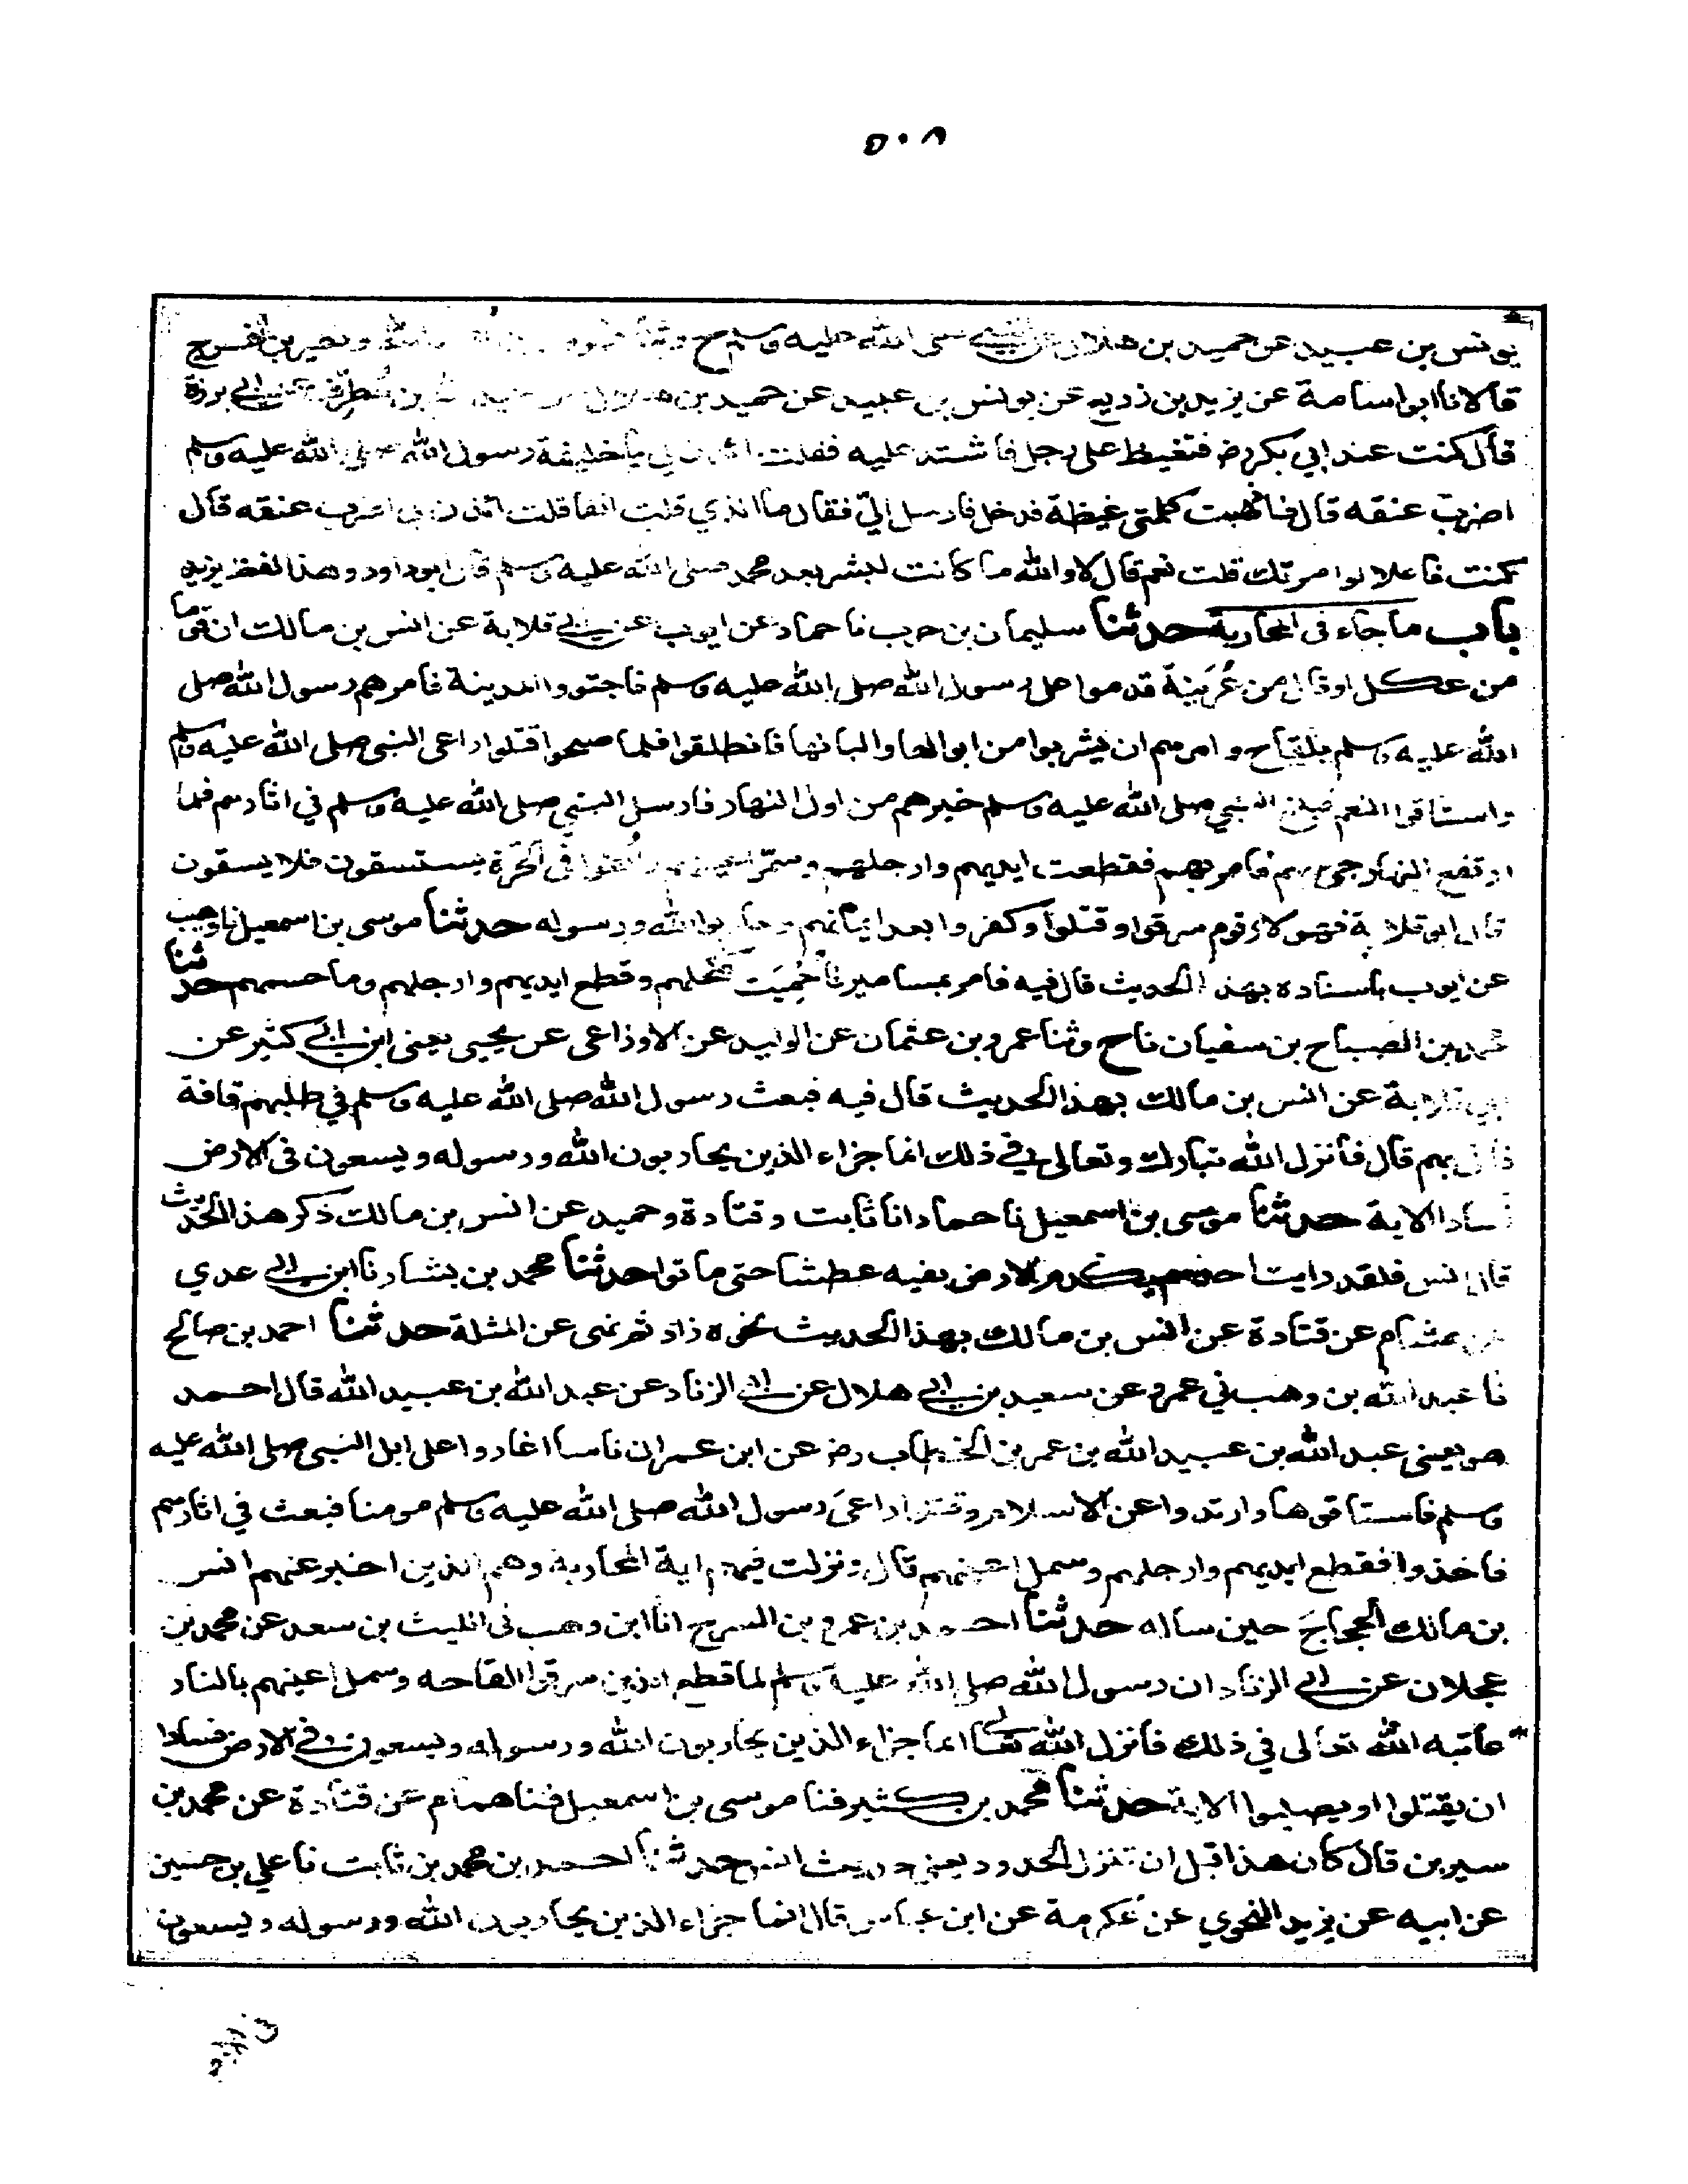 ٥٠٨
يونس بن عبيد عن حميد بن هلال عن النبي صلى الله عليه وسلم ح وثنا ونصير بن الفرج
قالا نا ابو اسامة عن يزيد بن زريع عن يونس بن عبيد عن حميد بن هلال عن بن مطرف عن ابي برزة
قال كنت عند ابي بكر رض فتغيظ على رجل فاشتد عليه فقلت ائذن لي يا خليفة رسول الله صلى الله عليه وسلم
اضرب عنقه قال فاذهبت كلمتي غيظه فدخل فارسل اليّ فقال ما الذي قلت انفا قلت ائذن لي اضرب عنقه قال
كنت فاعلا لو امرتك قلت نعم قال لا والله ما كانت لبشر بعد محمد صلى الله عليه وسلم قال ابو داود وهذا لفظ يزيد
باب ما جاء في المحاربة حدثنا سليمان بن حرب نا حماد عن ايوب عن ابي قلابة عن انس بن مالك ان قوما
من عكل او قال من عُرَينة قدموا على رسول الله صلى الله عليه وسلم فاجتووا المدينة فامر هم رسول الله صلى
الله عليه وسلم بلقاح وامرهم ان يشربوا من ابوالها والبانها فانطلقوا فلما صحوا قتلوا راعى النبي صلى الله عليه وسلم
واستاقوا النعم فبلغ النبي صلى الله عليه وسلم خبرهم من اول النهار فارسل النبي صلى الله عليه وسلم في اثارهم فما
ارتفع النهار حتى جيء بهم فامر بهم فقطعت ايديهم وارجلهم وسمّر اعينهم والقوا في الحَرّة يستسقون فلا يسقون
قال ابو قلابة فهولاء قوم سرقوا وقتلوا وكفروا بعد ايمانهم وحاربوا الله ورسوله حدثنا موسى بن اسمعيل نا وهيب
عن ايوب باسناده بهذا الحديث قال فيه فامر بمسامير فاُحْمِيَت فكحلهم وقطع ايديهم وارجلهم وما حسمهم حدثنا
محمد بن الصباح بن سفيان نا ح وثنا عمرو بن عثمان عن الوليد عن الاوزاعى عن يحيى يعنى ابن ابي كثير عن
ابي قلابة عن انس بن مالك بهذا الحديث قال فيه فبعث رسول الله صلى الله عليه وسلم في طلبهم قافة
فاتى بهم قال فانزل الله تبارك وتعالى في ذلك انما جزاء الذين يحاربون الله ورسوله ويسعون فى الارض
فسادا الاية حدثنا موسى بن اسمعيل نا حماد انا ثابت وقتادة وحميد عن انس بن مالك ذكر هذا الحديث
قال انس فلقد رايت احدهم يكدم الارض بفيه عطشا حتى ماتوا حدثنا محمد بن بشار نا ابن ابي عدي
عن هشام عن قتادة عن انس بن مالك بهذا الحديث نحوه زاد ثم نهى عن المثلة حدثنا احمد بن صالح
نا عبد الله بن وهب ني عمرو عن سعيد بن ابي هلال عن ابي الزناد عن عبد الله بن عبيد الله قال احمد
هو يعنى عبد الله بن عبيد الله بن عمر بن الخطاب رض عن ابن عمر ان ناسا اغاروا على ابل النبى صلى الله عليه
وسلم فاستاقوها وارتدوا عن الاسلام وقتلوا راعىَ رسول الله صلى الله عليه وسلم مومنا فبعث في اثارهم
فاخذوا فقطع ايديهم وارجلهم وسمل اعينهم قال ونزلت فيهم اية المحاربة وهم الذين اخبر عنهم انس
بن مالك الحجاجَ حين ساله حدثنا احمد بن عمرو بن السرح انا ابن وهب نى الليث بن سعد عن محمد بن
عجلان عن ابي الزناد ان رسول الله صلى الله عليه وسلم لما قطع الذين سرقوا لقاحه وسمل اعينهم بالنار
عاتبه الله تعالى في ذلك فانزل الله تعالى انما جزاء الذين يحاربون الله ورسوله ويسعون في الارض فسادا
ان يقتلوا او يصلبوا الاية حدثنا محمد بن كثير فنا موسى بن اسمعيل فنا همام عن قتادة عن محمد بن
سيرين قال كان هذا قبل ان تنزل الحدود يعنى حديث انس حدثنا احمد بن محمد بن ثابت نا علي بن حسين
عن ابيه عن يزيد النحوي عن عكرمة عن ابن عباس قال انما جزاء الذين يحاربون الله ورسوله ويسعون